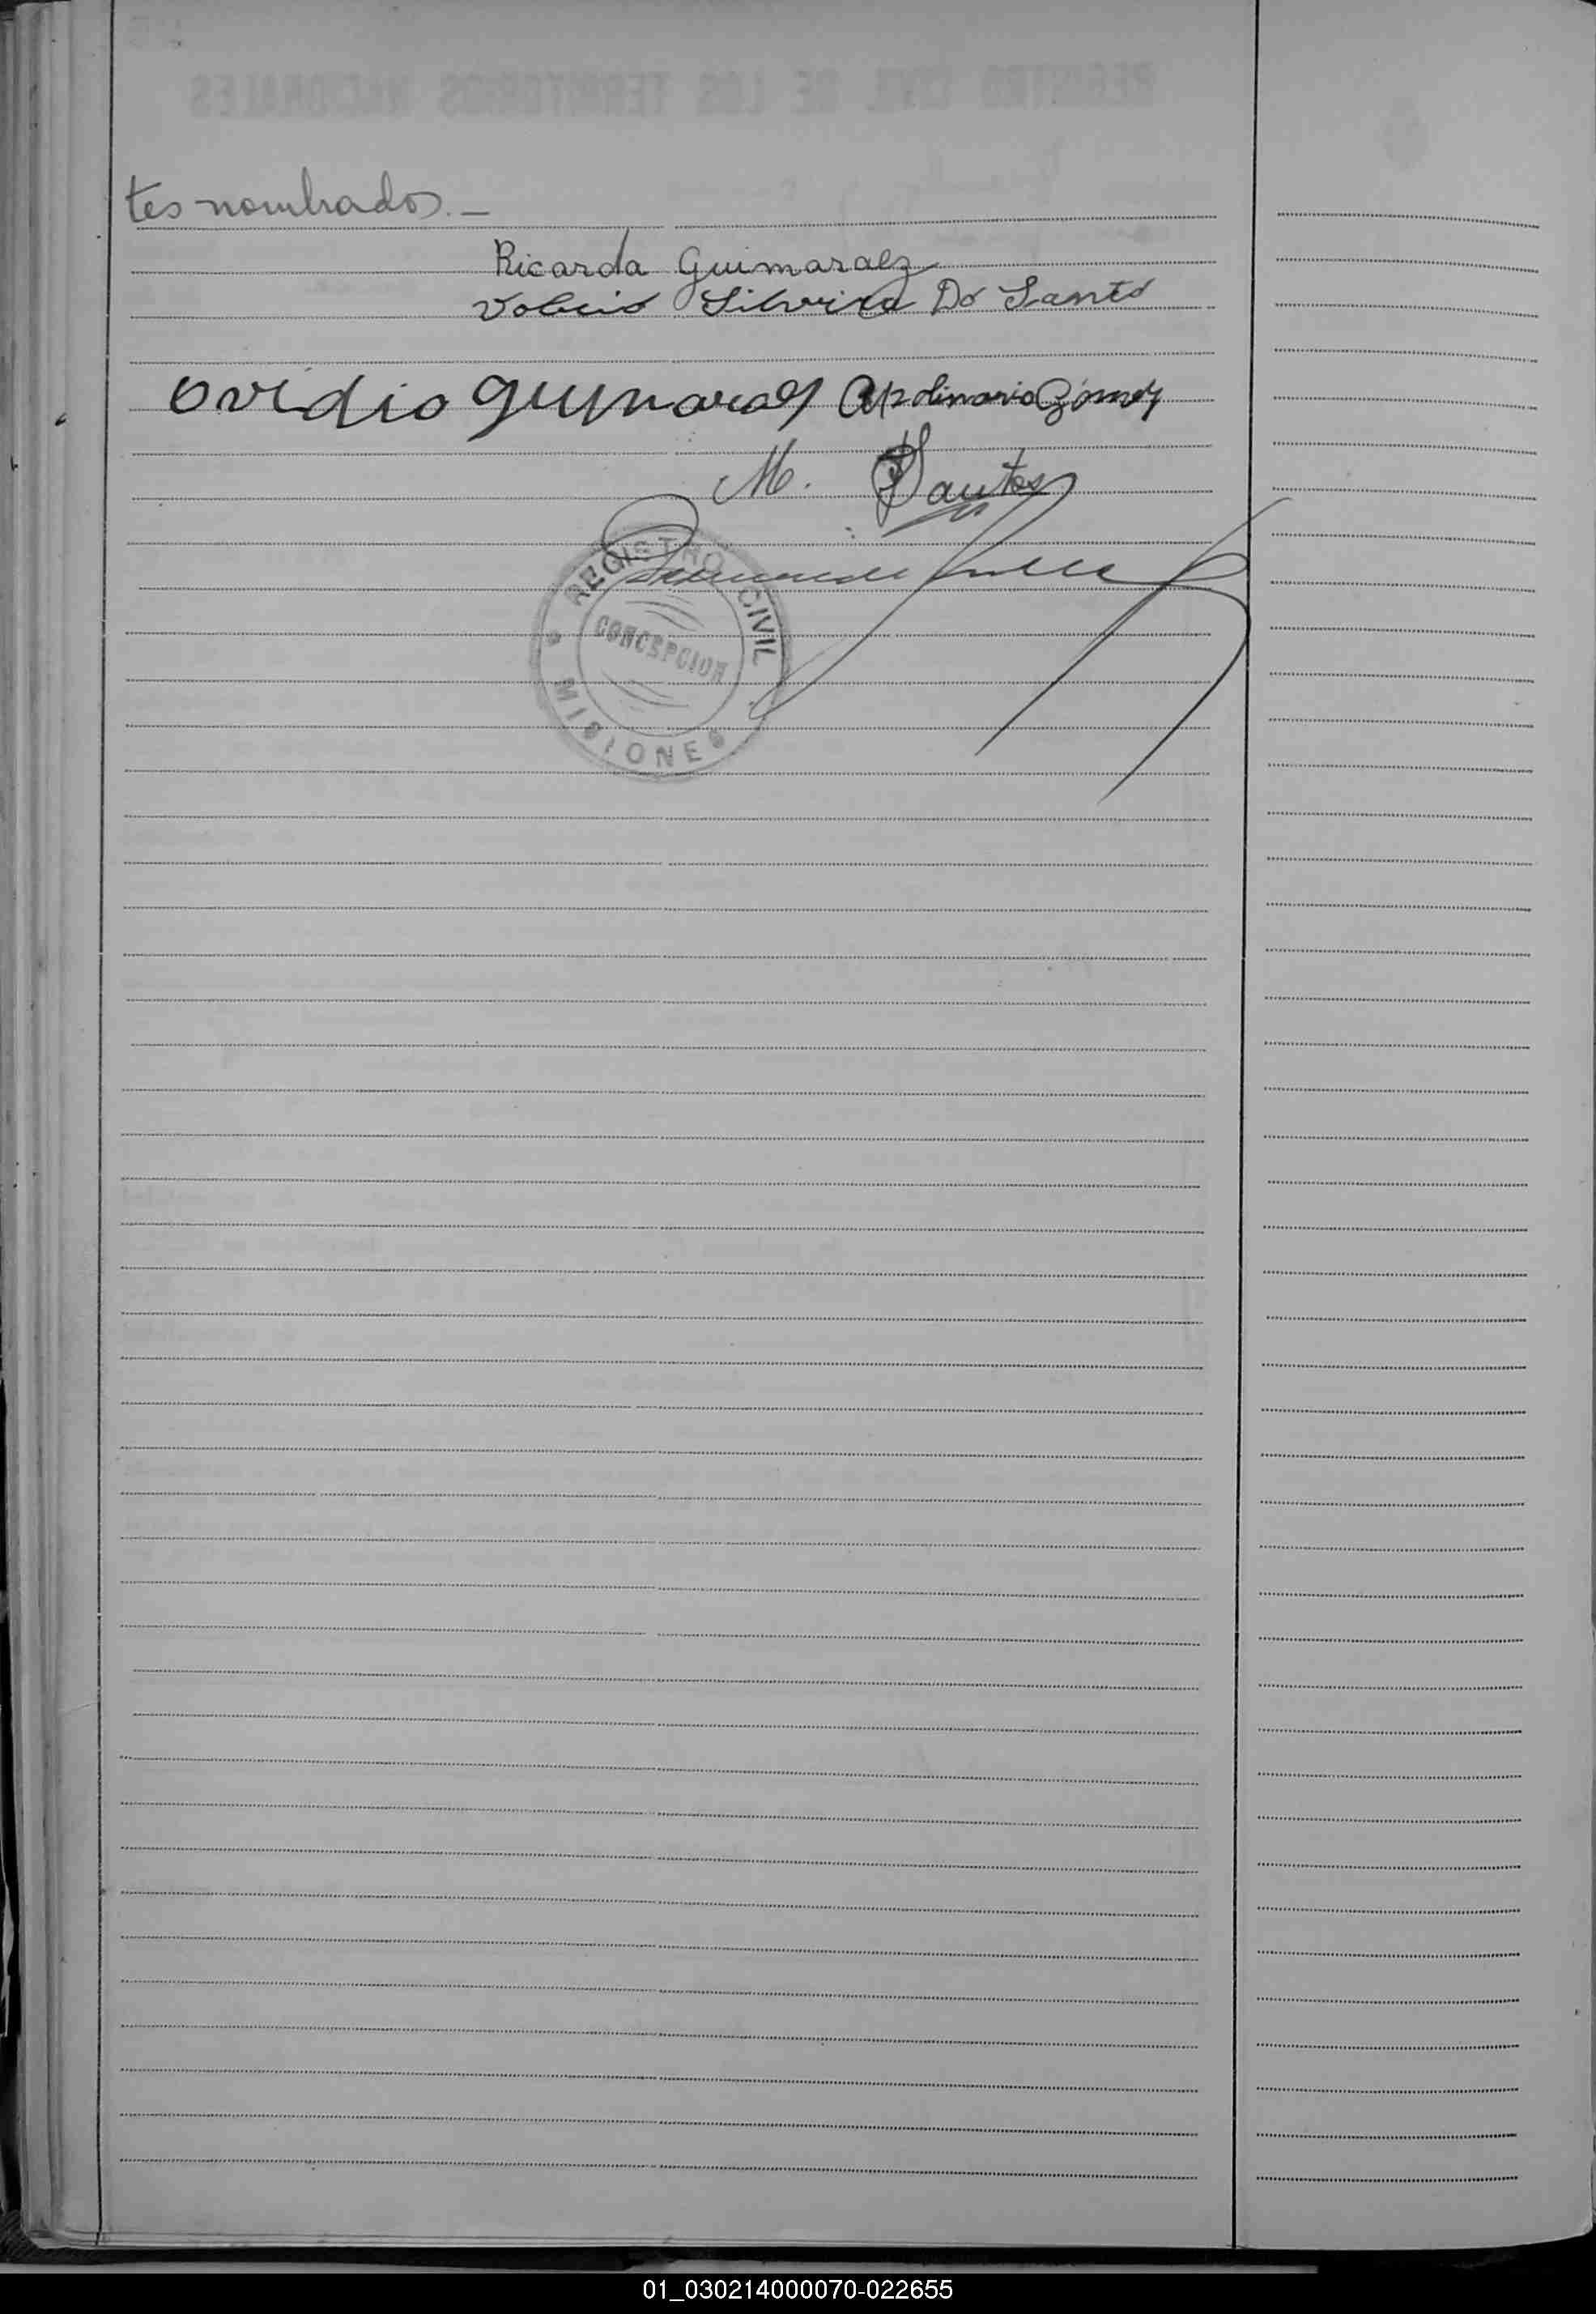 tes nombrados.—
Ricarda Guimaraez
Silveira Do Santo
Ovidio Guymaraes Apolinario Gómez
M. Santos
REGISTRO CIVIL
CONCEPCION
MISIONES
01_030214000070-022655